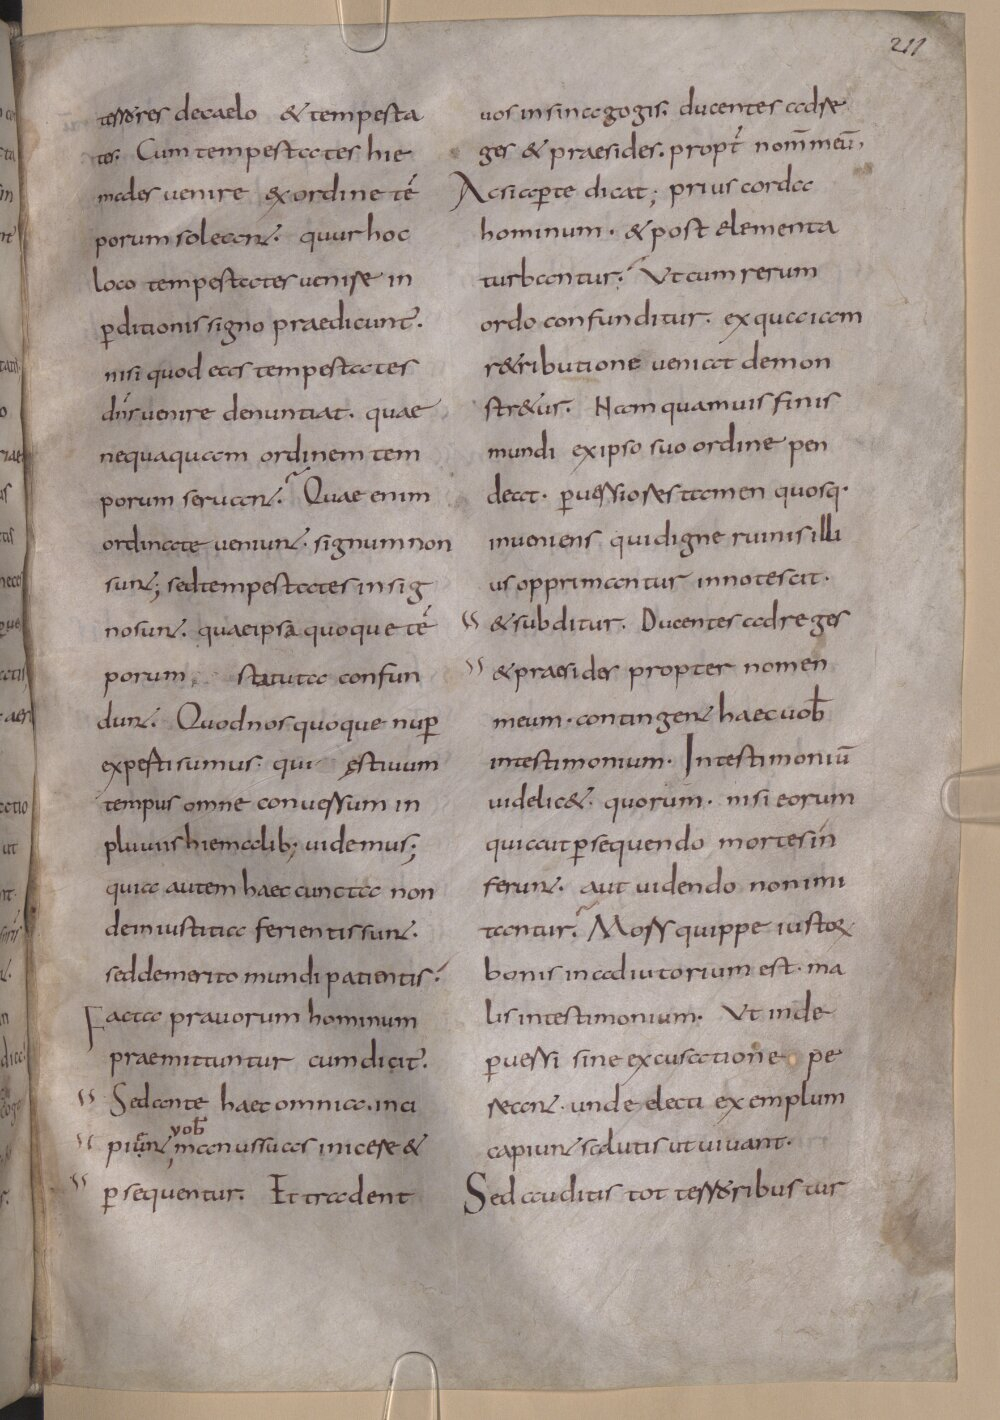 211
terrores decaelo & tempesta
tes. Cum tempestates hie
males uenire ex ordine tē
porum soleant. quur hoc
loco tempestates uenire in
perditionis signo praedicunt.
nisi quod eas tempestates
dn̄s uenire denuntiat. quae
nequaquam ordinem tem
porum seruant. Quae enim
ordinate ueniunt. signum non
sunt; sed tempestates in sig
no sunt. quae ipsa quoque tē
porum statuta confun
dunt. Quod nos quoque nuper
experti sumus. qui ęstiuum
tempus omne conuersum in
pluuiis hiemalib; uidemus;
quia autem haec cuncta non
de iniustitia ferientis sunt.
sed de merito mundi patientis.
Facta prauorum hominum
praemittuntur cum dicit.
Sed ante haec omnia. inci
pient uob manus suas inicere &
persequentur. Et tradent
uos in sinagogis. ducentes ad re
ges & praesides. propt̄ nom̄ meū,
Ac si aperte dicat; prius corda
hominum. & post elementa
turbantur. Ut cum rerum
ordo confunditur. ex qua iam
r&ributione ueniat demon
str&ur. Nam quamuis finis
mundi ex ipso suo ordine pen
deat. peruersiores tamen quosq.
inueniens qui digne ruinis illi
us opprimantur innotescit.
& subditur. Ducentes ad reges
& praesides propter nomen
meum. contingent haec uob̄
in testimonium. In testimoniū
uidelic&. quorum. nisi eorum
qui aut persequendo mortes in
ferunt. aut uidendo non imi
tantur. Mors quippe iustorum
bonis in adiutorium est. ma
lis in testimonium. Ut inde
peruersi sine excusatione pe
reant. unde electi exemplum
capiunt salutis ut uiuant.
Sed auditis tot terroribus tur